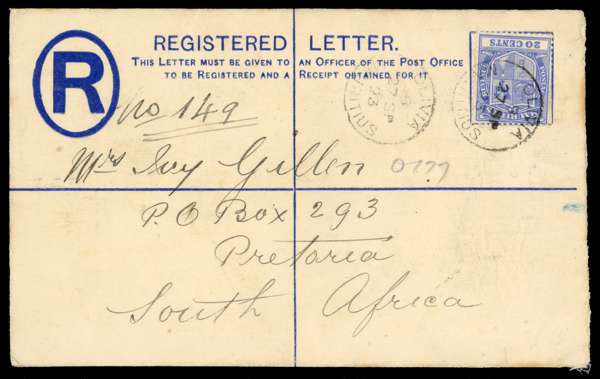 R
REGISTERED LETTER.
THIS LETTER MUST BE GIVEN TO AN OFFICER OF THE POST OFFICE
TO BE REGISTERED AND A RECEIPT OBTAINED FOR IT.
20 CENTS
No 149
27
23
27
Mrs Ivy Gillen
P.O Box 293
Pretoria
South Africa